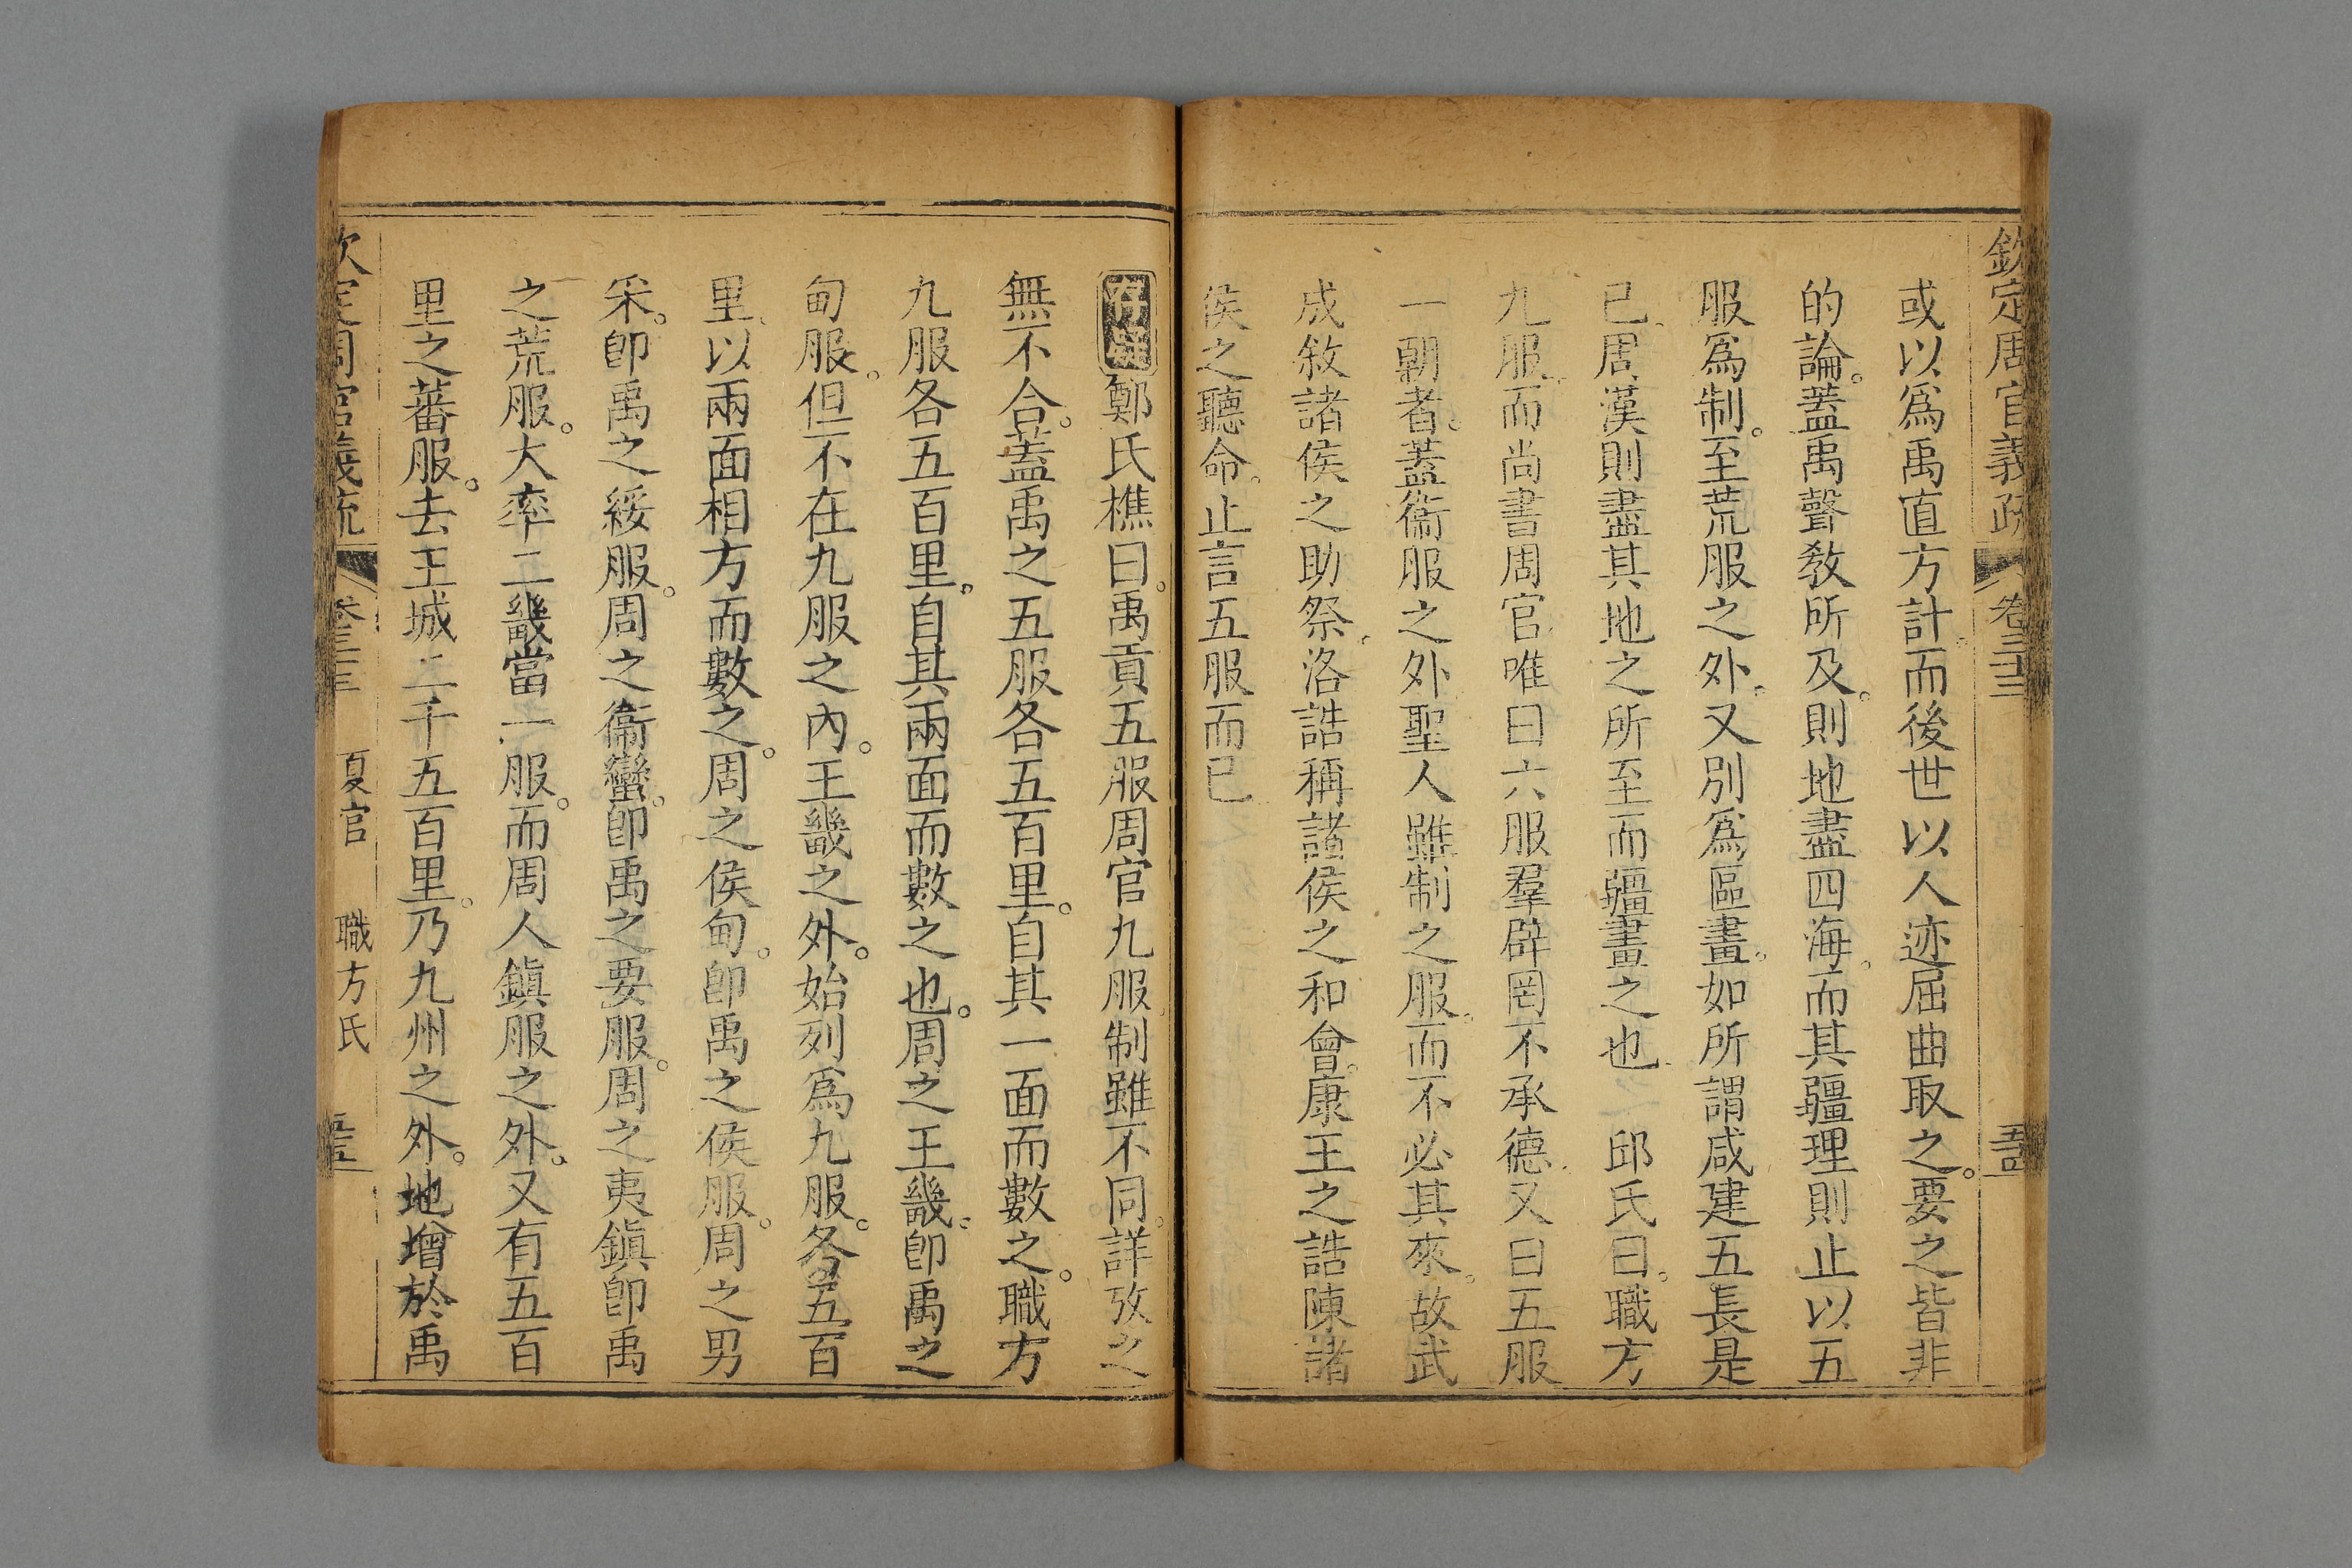 欽定周官義疏 卷三十三 五十四
或以為禹直方計。而後世以人迹屈曲取之。要之皆非
的論。蓋禹聲敎所及。則地盡四海。而其疆理則止以五
服爲制。至荒服之外。又別爲區畫。如所謂咸建五長是
已。周漢則盡其地之所至而疆畫之也 邱氏曰。職方
九服。而尚書周官唯曰六服羣辟罔不承德。又曰五服
一朝者。蓋衞服之外聖人雖制之服。而不必其來。故武
成敘諸侯之助祭。洛誥稱諸侯之和會。康王之誥陳諸
侯之聽命。止言五服而已
存疑鄭氏樵曰。禹貢五服周官九服。制雖不同。詳攷之
無不合。蓋禹之五服各五百里。自其一面而數之。職方
九服各五百里。自其兩面而數之也。周之王畿。卽禹之
甸服。但不在九服之內。王畿之外。始列爲九服。各五百
里。以兩面相方而數之。周之侯甸。卽禹之侯服。周之男
采。卽禹之綏服。周之衞蠻。卽禹之要服。周之夷鎭卽禹
之荒服。大率二畿當一服。而周人鎭服之外。又有五百
里之蕃服。去王城二千五百里。乃九州之外。地增於禹
欽定周官義疏 卷三十三 夏官 職方氏